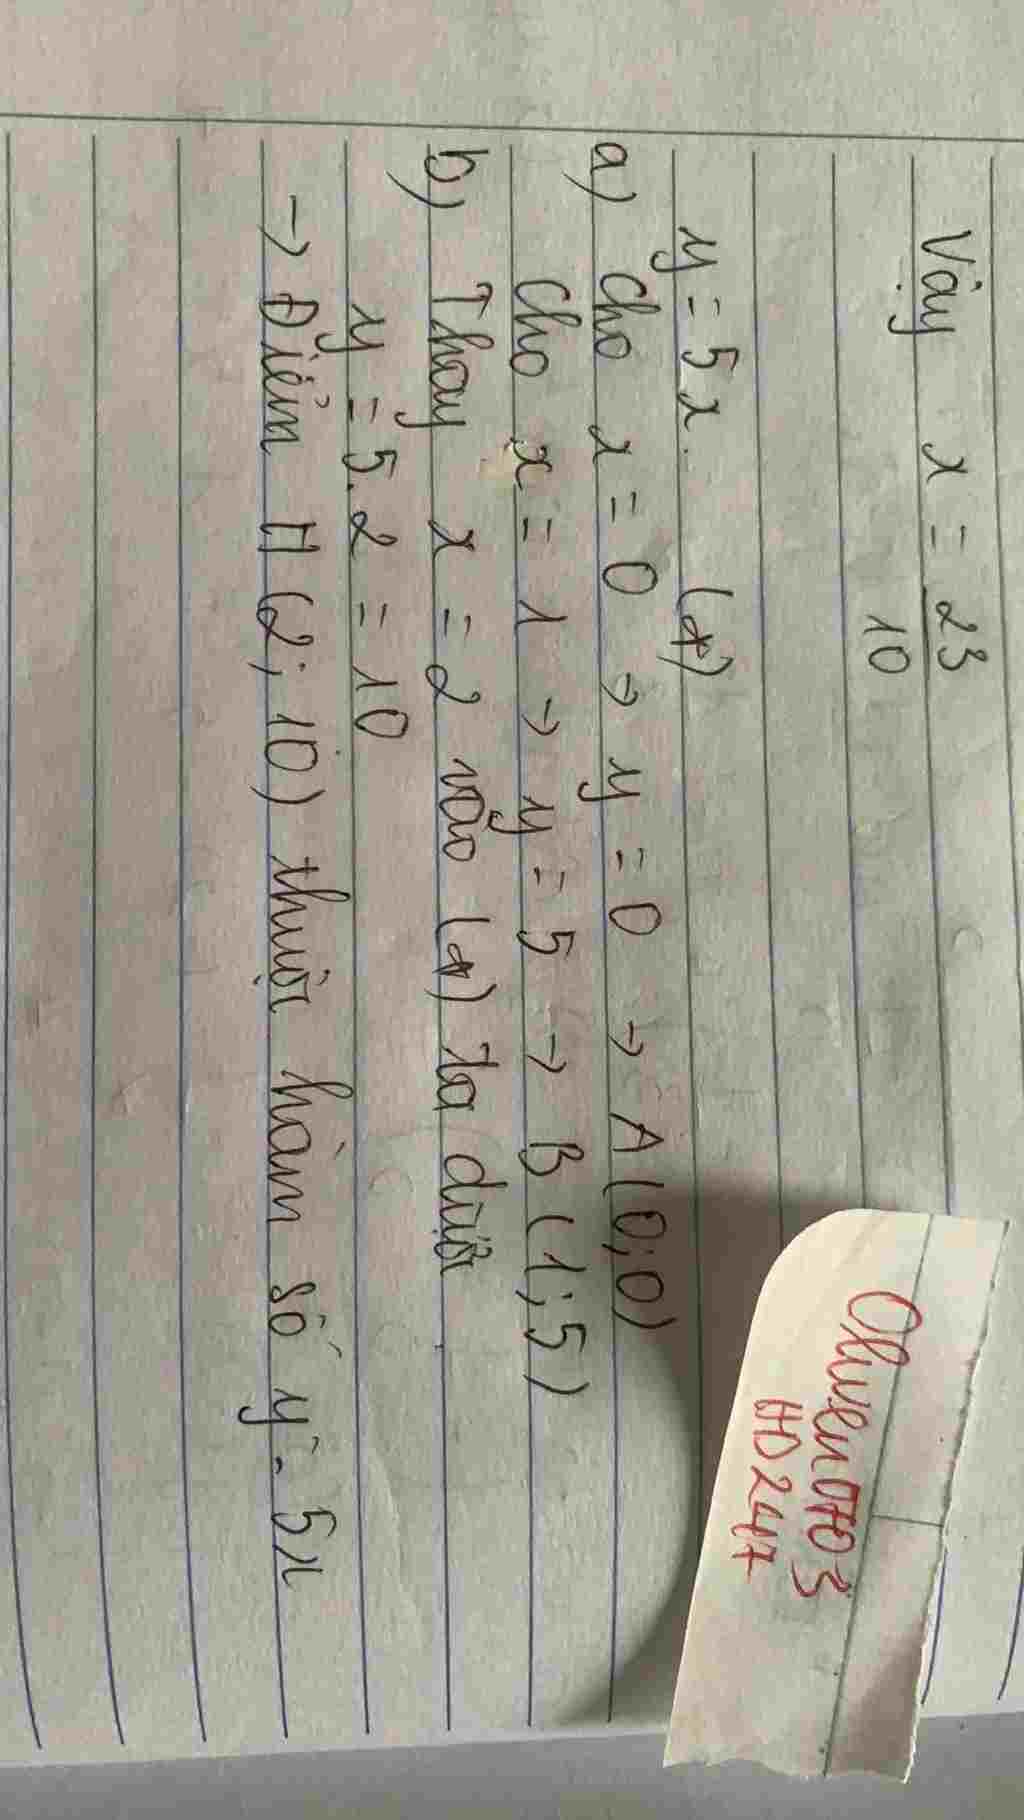 Vậy x = 23/10
y = 5x. (*)
a) Cho x = 0 → y = 0 → A(0;0)
Cho x = 1 → y = 5 → B(1;5)
b) Thay x = 2 vào (*) ta được
y = 5.2 = 10
→ Điểm H(2;10) thuộc hàm số y = 5x
HD247